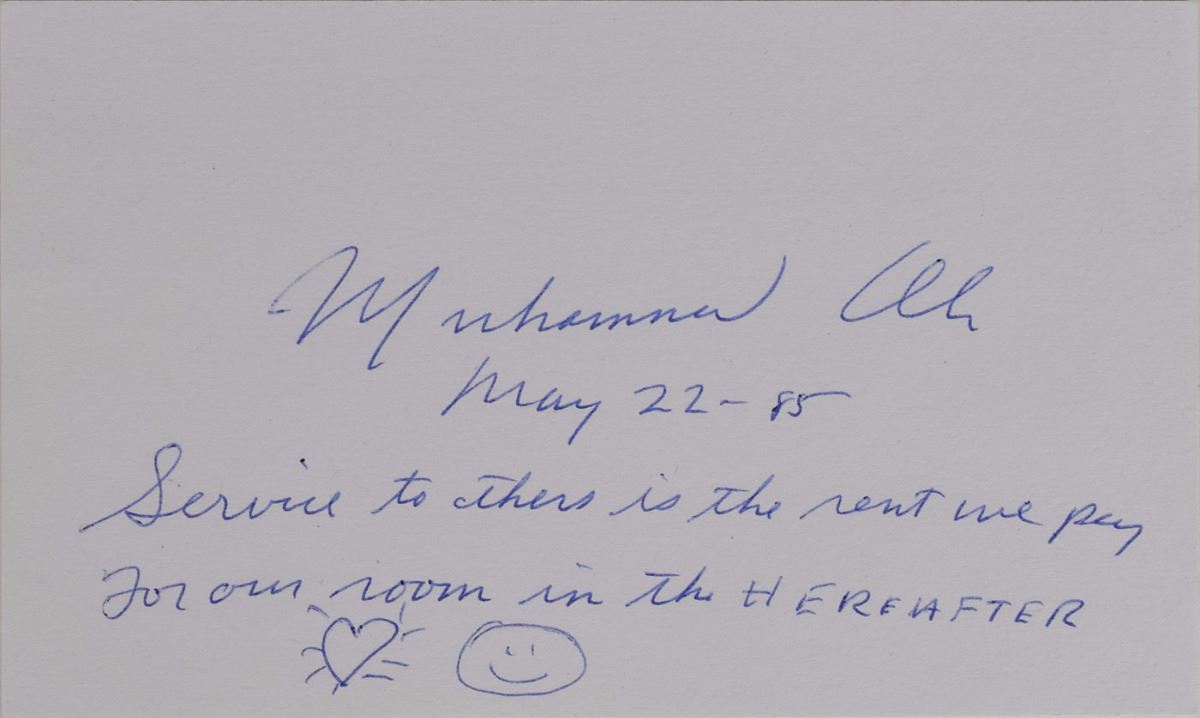 Muhammad Ali
May 22-85
Service to others is the rent we pay
For our room in the HEREAFTER